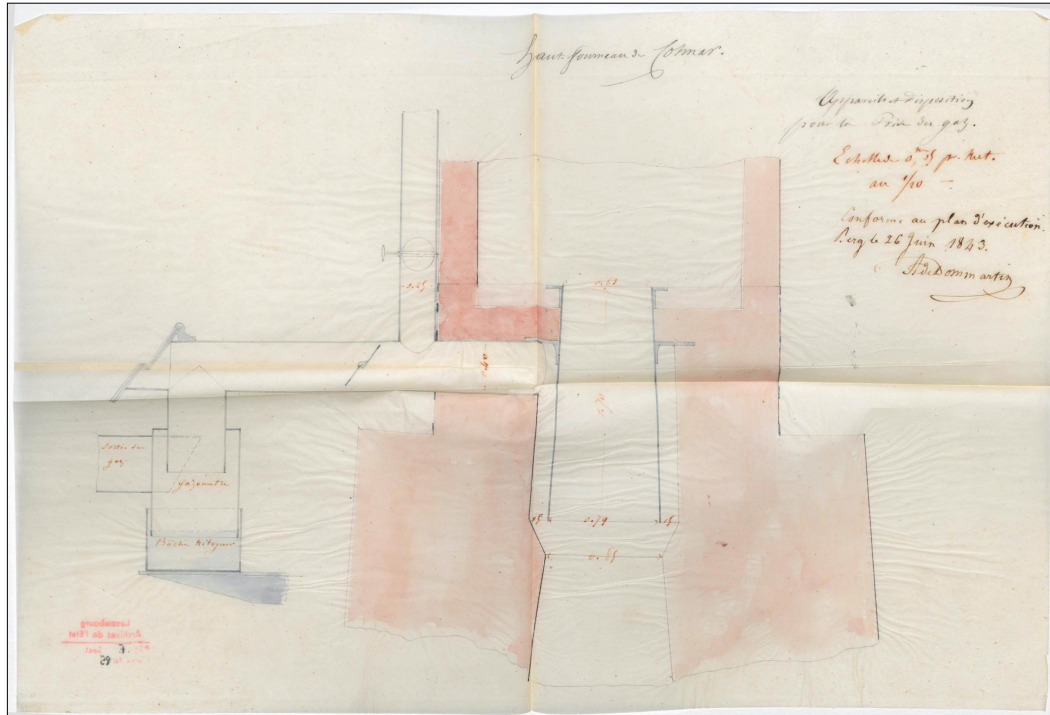 haut-fourneau de Colmar.
Appareil et disposition
pour la Prise du gaz.
Echelle de 0,05 pr. Met.
au 1/20
Conforme au plan d'exécution.
Berg le 26 Juin 1843.
A. de Dommartin
0.25
0.62
0.40
0.70
Sortie du
gaz
gazomètre
Bache
15
0.79
15
0.85
Luxembourg
Archives de l'État